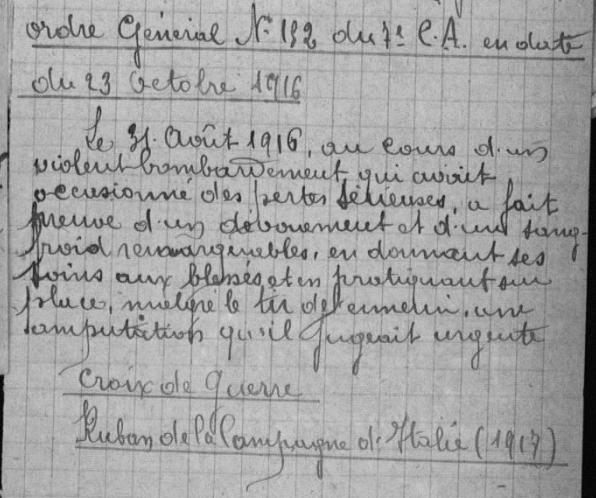 ordre Général N° 192 du 7e C.A. en date
du 23 Octobre 1916
Le 31 Août 1916, au cours d'un
violent bombardement qui avait
occasionné des pertes sérieuses, a fait
preuve d'un dévouement et d'un sang-
froid remarquables, en donnant ses
soins aux blessés et en pratiquant sur
place, malgré le tir de l'ennemi, une
amputation qu'il jugeait urgente
Croix de Guerre
Ruban de la Campagne d'Italie (1917)